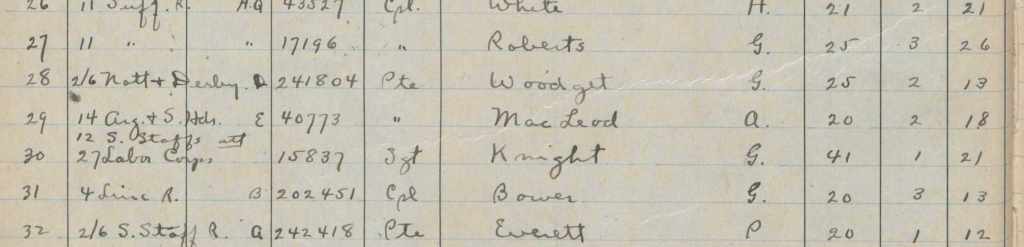 26 11 Suff. R. H.Q 43527 Cpl. White H. 21 2 21
27 11 " " 17196 " Roberts G. 25 3 26
28 2/6 Nott + Derby. D 241804 Pte Woodget G. 25 2 13
29 14 Arg. + S. Hds. E 40773 " MacLeod A. 20 2 18
12 S. Staffs att
30 27 Labor Corps 15837 Sgt Knight G. 41 1 21
31 4 Linc R. B 202451 Cpl Bower G. 20 3 13
32 2/6 S. Staff R. A 242418 Pte Everett P 20 1 12